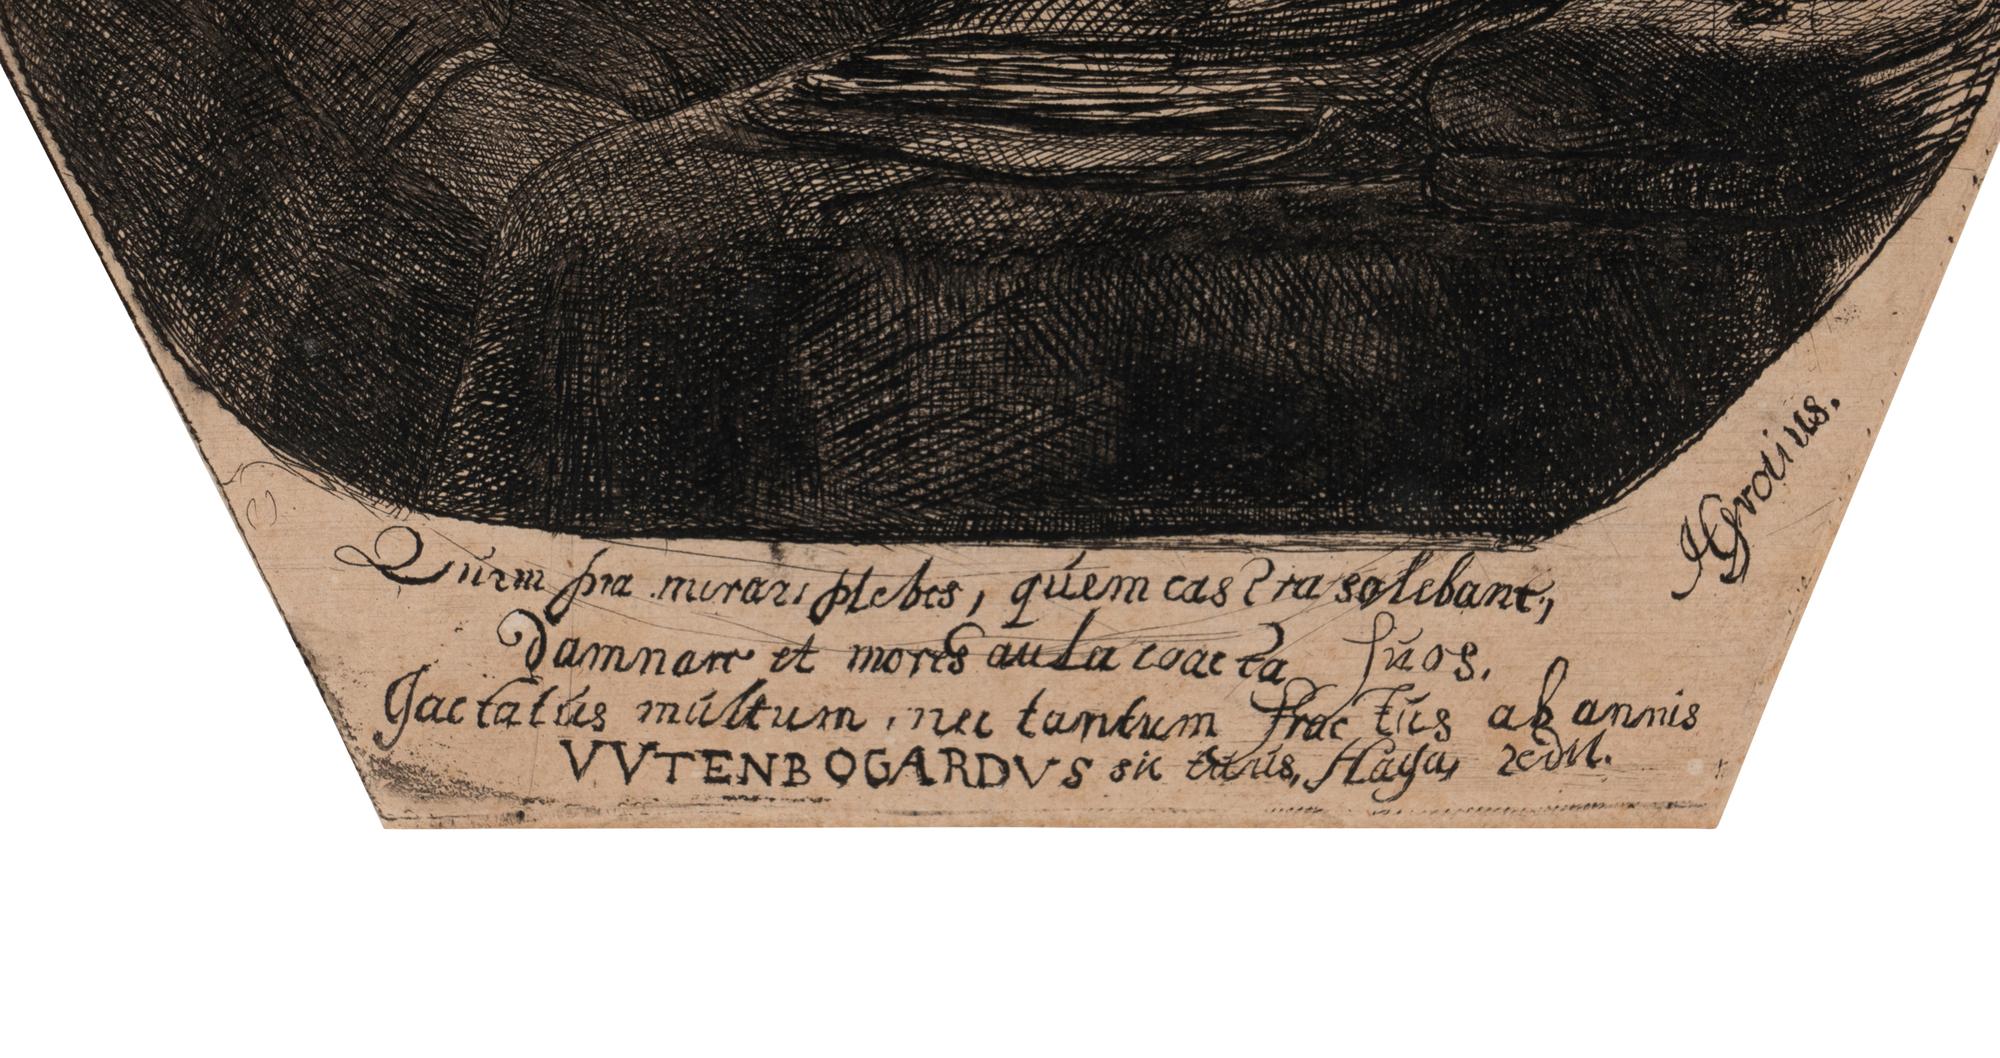 Quem pia mirari plebes, quem castra solebant,
Damnare et mores aula coacta suos.
Jactatus multum, nec tantum fractus ab annis
VVTENBOGARDVS sic tuus, Haga, redit.
HGrotius.